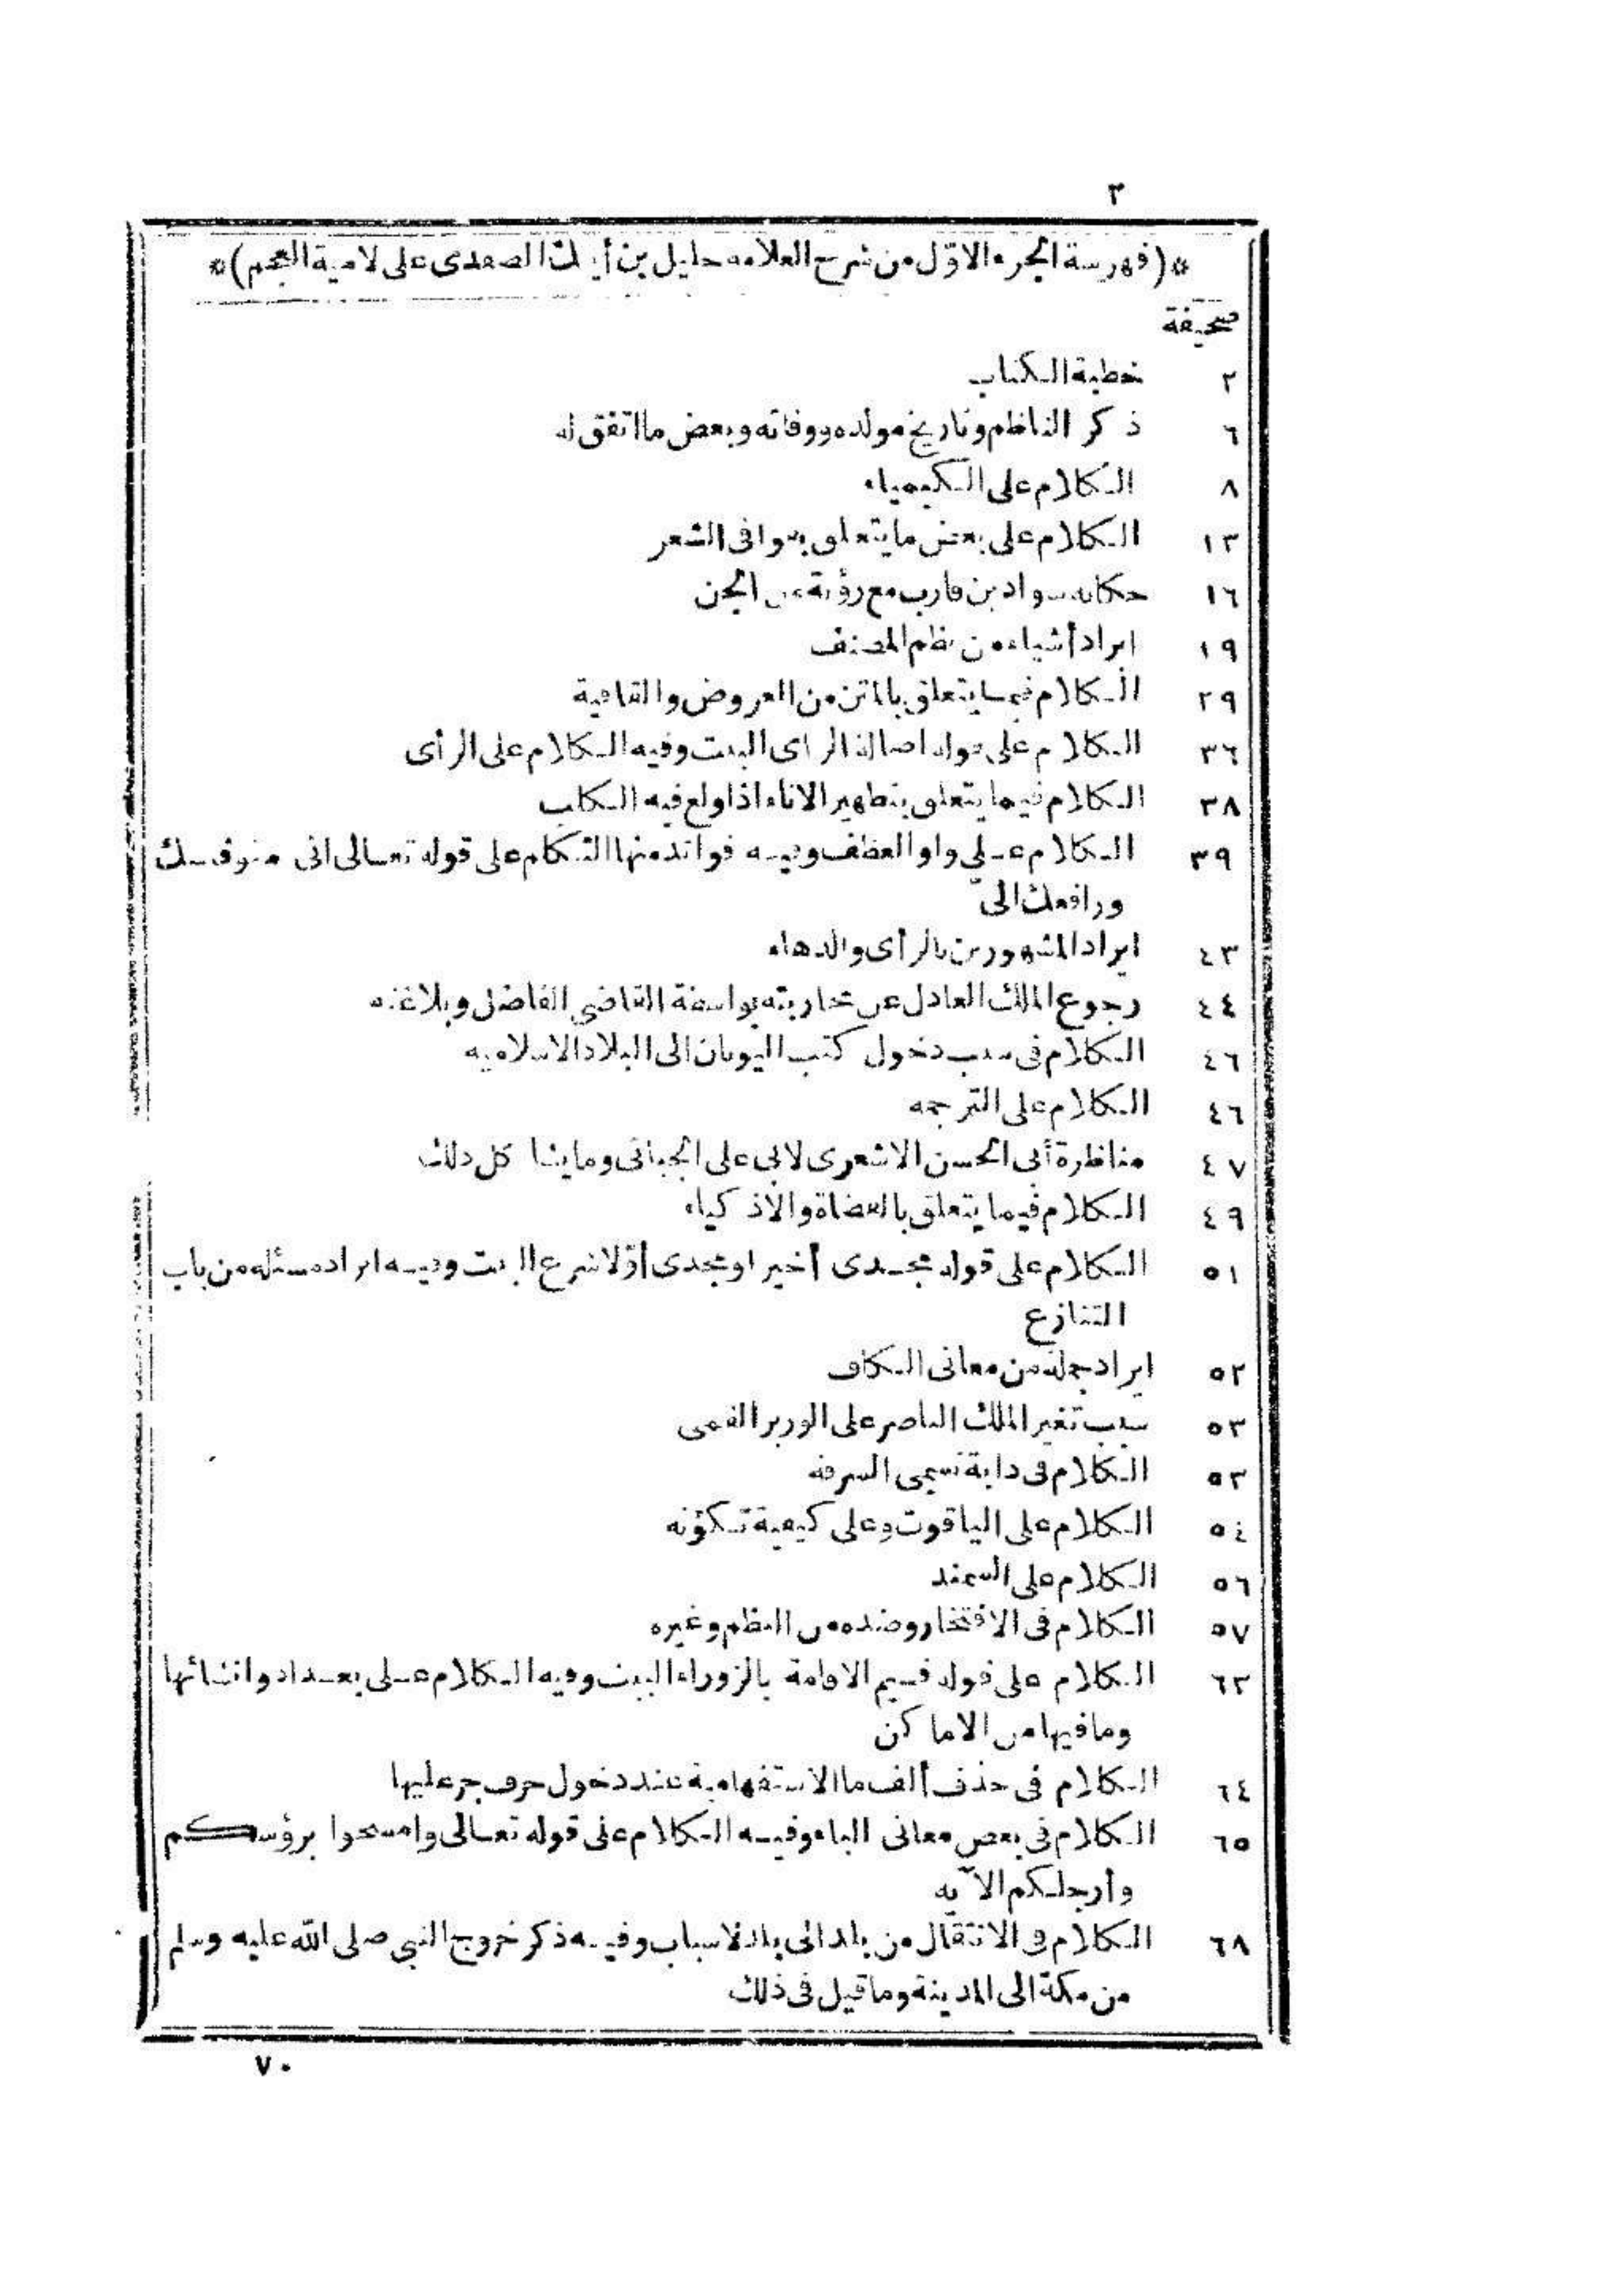 ٣
*(فهرسة الجزء الاوّل من شرح العلامه خليل بن أيبك الصفدى على لامية العجم)*
صحيفة
٢ خطبة الكتاب
٦ ذكر الناظم وتاريخ مولده ووفاته وبعض ما اتفق له
٨ الكلام على الكيمياء
١٣ الكلام على بعض ما يتعلق بقوافى الشعر
١٦ حكاية سواد بن قارب مع رؤيته من الجن
١٩ ايراد أشياء من نظم المصنف
٢٩ الكلام فيما يتعلق بالمتن من العروض والقافية
٣٦ الكلام على قوله اصالة الرأى البيت وفيه الكلام على الرأى
٣٨ الكلام فيما يتعلق بتطهير الاناء اذا ولغ فيه الكلب
٣٩ الكلام على واو العطف وفيه فوائد منها التكلم على قوله تعالى انى متوفيك
ورافعك الىّ
٤٣ ايراد المشهورين بالرأى والدهاء
٤٤ رجوع الملك العادل عن محاربته بواسطة القاضى الفاضل وبلاغته
٤٦ الكلام فى سبب دخول كتب اليونان الى البلاد الاسلاميه
٤٦ الكلام على الترجمه
٤٧ مناظرة أبى الحسن الاشعرى لابى على الجبائى وما يشاكل ذلك
٤٩ الكلام فيما يتعلق بالقضاة والاذكياء
٥١ الكلام على قوله مجدى أخيرا ومجدى أوّلا شرع البيت وفيه ايراد مسئله من باب
التنازع
٥٢ ايراد جملة من معانى الكاف
٥٣ سبب تغير الملك الناصر على الوزير القمى
٥٣ الكلام فى دابة تسمى السرفه
٥٤ الكلام على الياقوت وعلى كيفية تكوّنه
٥٦ الكلام على السمند
٥٧ الكلام فى الافتخار وضده من النظم وغيره
٦٢ الكلام على قوله فيم الاقامة بالزوراء البيت وفيه الكلام على بغداد وانشائها
وما فيها من الاماكن
٦٤ الكلام فى حذف ألف ما الاستفهامية عند دخول حرف جر عليها
٦٥ الكلام فى بعض معانى الباء وفيه الكلام على قوله تعالى وامسحوا برؤسكم
وأرجلكم الآيه
٦٨ الكلام فى الانتقال من بلد الى بلد لاسباب وفيه ذكر خروج النبى صلى الله عليه وسلم
من مكة الى المدينة وما قيل فى ذلك
٧٠